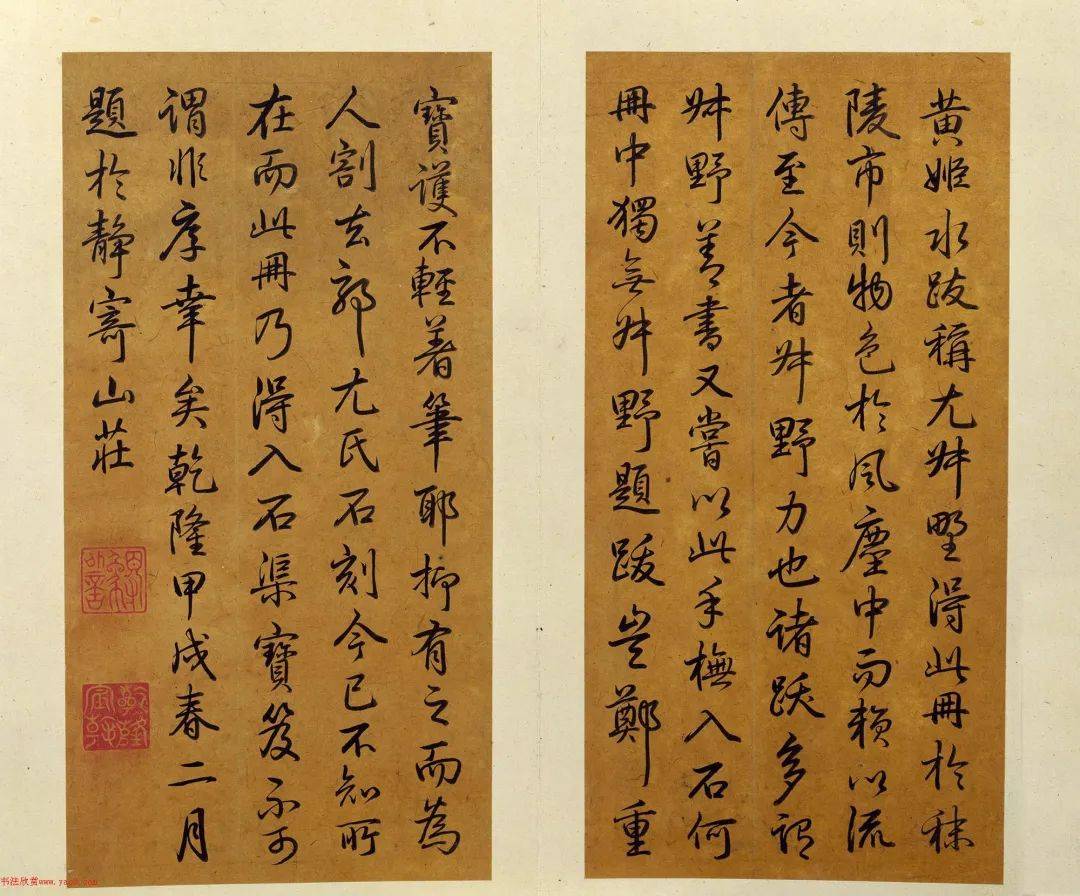 黄姬水跋稱尤叔野得此冊於秣
陵市則物色於風塵中而賴以流
傳至今者叔野力也諸跋多謂
叔野善書又嘗以此手橅入石何
冊中獨無叔野題跋豈鄭重
寶護不輕着筆耶抑有之而為
人割去耶尤氏石刻今已不知所
在而此冊乃得入石渠寶笈不可
謂非厚幸矣乾隆甲戌春二月
題於靜寄山莊
乾隆宸翰
书法欣赏www.